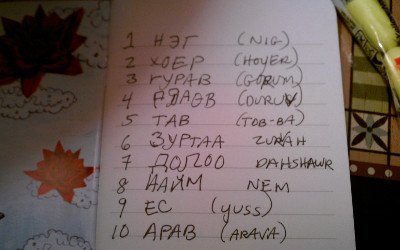 1 НЭГ (NIG)
2 ХОЕР (HOYER)
3 ГУРАВ (GORUM)
4 (DURUV)
5 ТАВ (TOB-BA)
6 ЗУРТАА ZURAH
7 ДОЛОО DAHSHAWR
8 НАЙМ NEM
9 ЕС (yuss)
10 АРАВ (ARAVA)